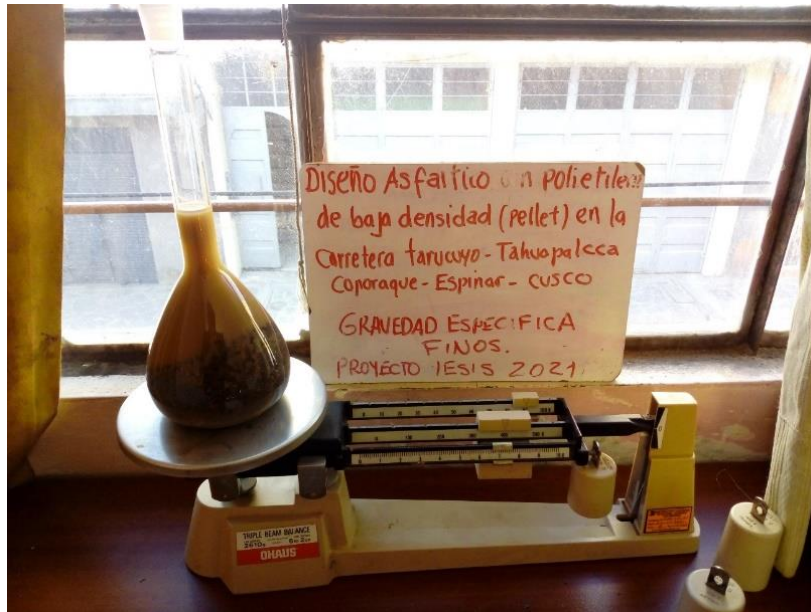 Diseño Asfaltico con Polietileno
de baja densidad (pellet) en la
Carretera tarucuyo - Tahuapalcca
Coporaque - Espinar - CUSCO
GRAVEDAD ESPECIFICA
FINOS.
PROYECTO TESIS 2021
TRIPLE BEAM BALANCE
2610g
5 lb 2 oz
OHAUS